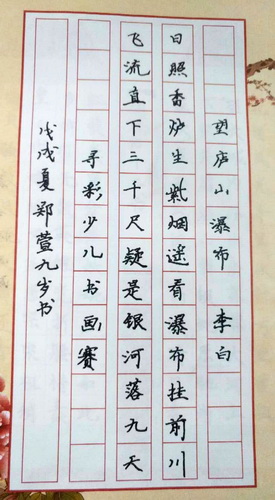 望庐山瀑布 李白
日照香炉生紫烟遥看瀑布挂前川
飞流直下三千尺疑是银河落九天
寻彩少儿书画赛
戊戌夏郑萱九岁书